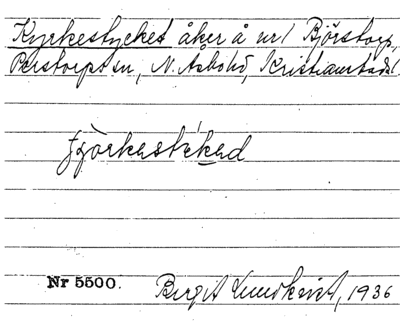 Kyrkestycket åker å nr 1 Björstorp,
Perstorps sn, N. Åsbohd, Kristianstads l
Nr 5500. Birgit Lundkvist, 1936